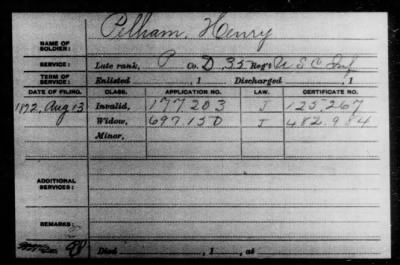 Pelham, Henry
NAME OF SOLDIER:
SERVICE: Late rank, P Co. D, 35 Reg't U S C Inf
TERM OF SERVICE: Enlisted , 1 Discharged , 1
DATE OF FILING. CLASS. APPLICATION NO. LAW. CERTIFICATE NO.
1872, Aug 13 Invalid, 177.203 J 125.267
Widow, 697.150 J 482.954
Minor,
ADDITIONAL SERVICES:
REMARKS:
Died , 1 , at